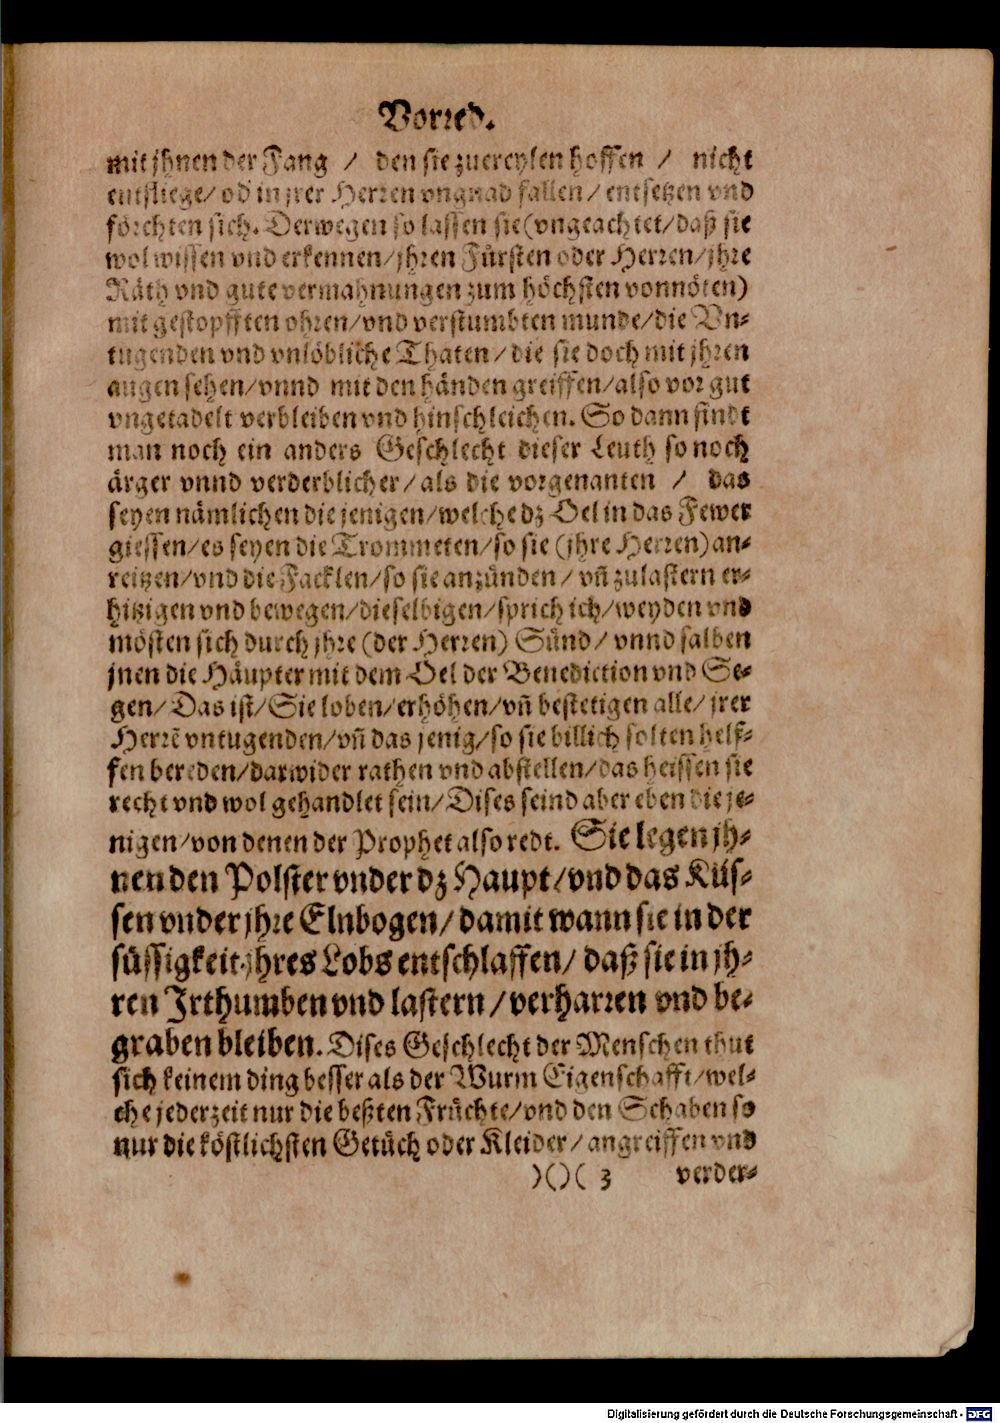 Vorred.
mit jhnen der Fang / den sie zuereylen hoffen / nicht
entfliege/ od' in jrer Herren vngnad fallen/ entsetzen vnd
förchten sich. Derwegen so lassen sie (vngeachtet/ daß sie
wol wissen vnd erkennen/ jhren Fürsten oder Herren/ jhre
Räth vnd gute vermahnungen zum höchsten vonnöten)
mit gestopfften ohren/ vnd verstumbten munde/ die Vn-
tugenden vnd vnlöbliche Thaten/ die sie doch mit jhren
augen sehen/ vnnd mit den händen greiffen/ also vor gut
vngetadelt verbleiben vnd hinschleichen. So dann findt
man noch ein anders Geschlecht dieser Leuth so noch
ärger vnnd verderblicher/ als die vorgenanten / das
seyen nämlichen die jenigen/ welche dz Oel in das Fewer
giessen/ es seyen die Trommeten/ so sie (jhre Herren) an-
reitzen/ vnd die Facklen/ so sie anzünden/ vñ zu lastern er-
hitzigen vnd bewegen/ dieselbigen/ sprich ich/ weyden vnd
mösten sich durch jhre (der Herren) Sünd/ vnnd salben
jnen die Häupter mit dem Oel der Benediction vnd Se-
gen/ Das ist/ Sie loben/ erhöhen/ vñ bestetigen alle/ jrer
Herrẽ vntugenden/ vñ das jenig/ so sie billich solten helf-
fen bereden/ darwider rathen vnd abstellen/ das heissen sie
recht vnd wol gehandlet sein/ Dises seind aber eben die je-
nigen/ von denen der Prophet also redt. Sie legen jh-
nen den Polster vnder dz Haupt/ vnd das Küs-
sen vnder jhre Elnbogen/ damit wann sie in der
süssigkeit jhres Lobs entschlaffen/ daß sie in jh-
ren Jrthumben vnd lastern/ verharren vnd be-
graben bleiben. Dises Geschlecht der Menschen thut
sich keinem ding besser als der Wurm Eigenschafft/ wel-
che jederzeit nur die beßten Früchte/ vnd den Schaben so
nur die köstlichsten Getüch oder Kleider/ angreiffen vnd
)()( 3 verder-
Digitalisierung gefördert durch die Deutsche Forschungsgemeinschaft - DFG